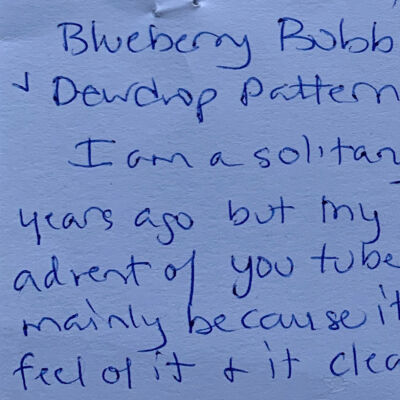 Blueberry Bubb
Dewdrop Pattern
I am a solitar
years ago but my
advent of you tube
mainly because it
feel of it & it clea